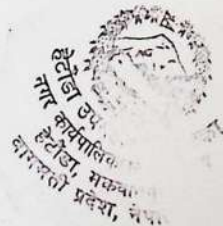 हेटौंडा उप
नगर कार्यपालिका
हेटौंडा, मकवा
बागमती प्रदेश, नेपा